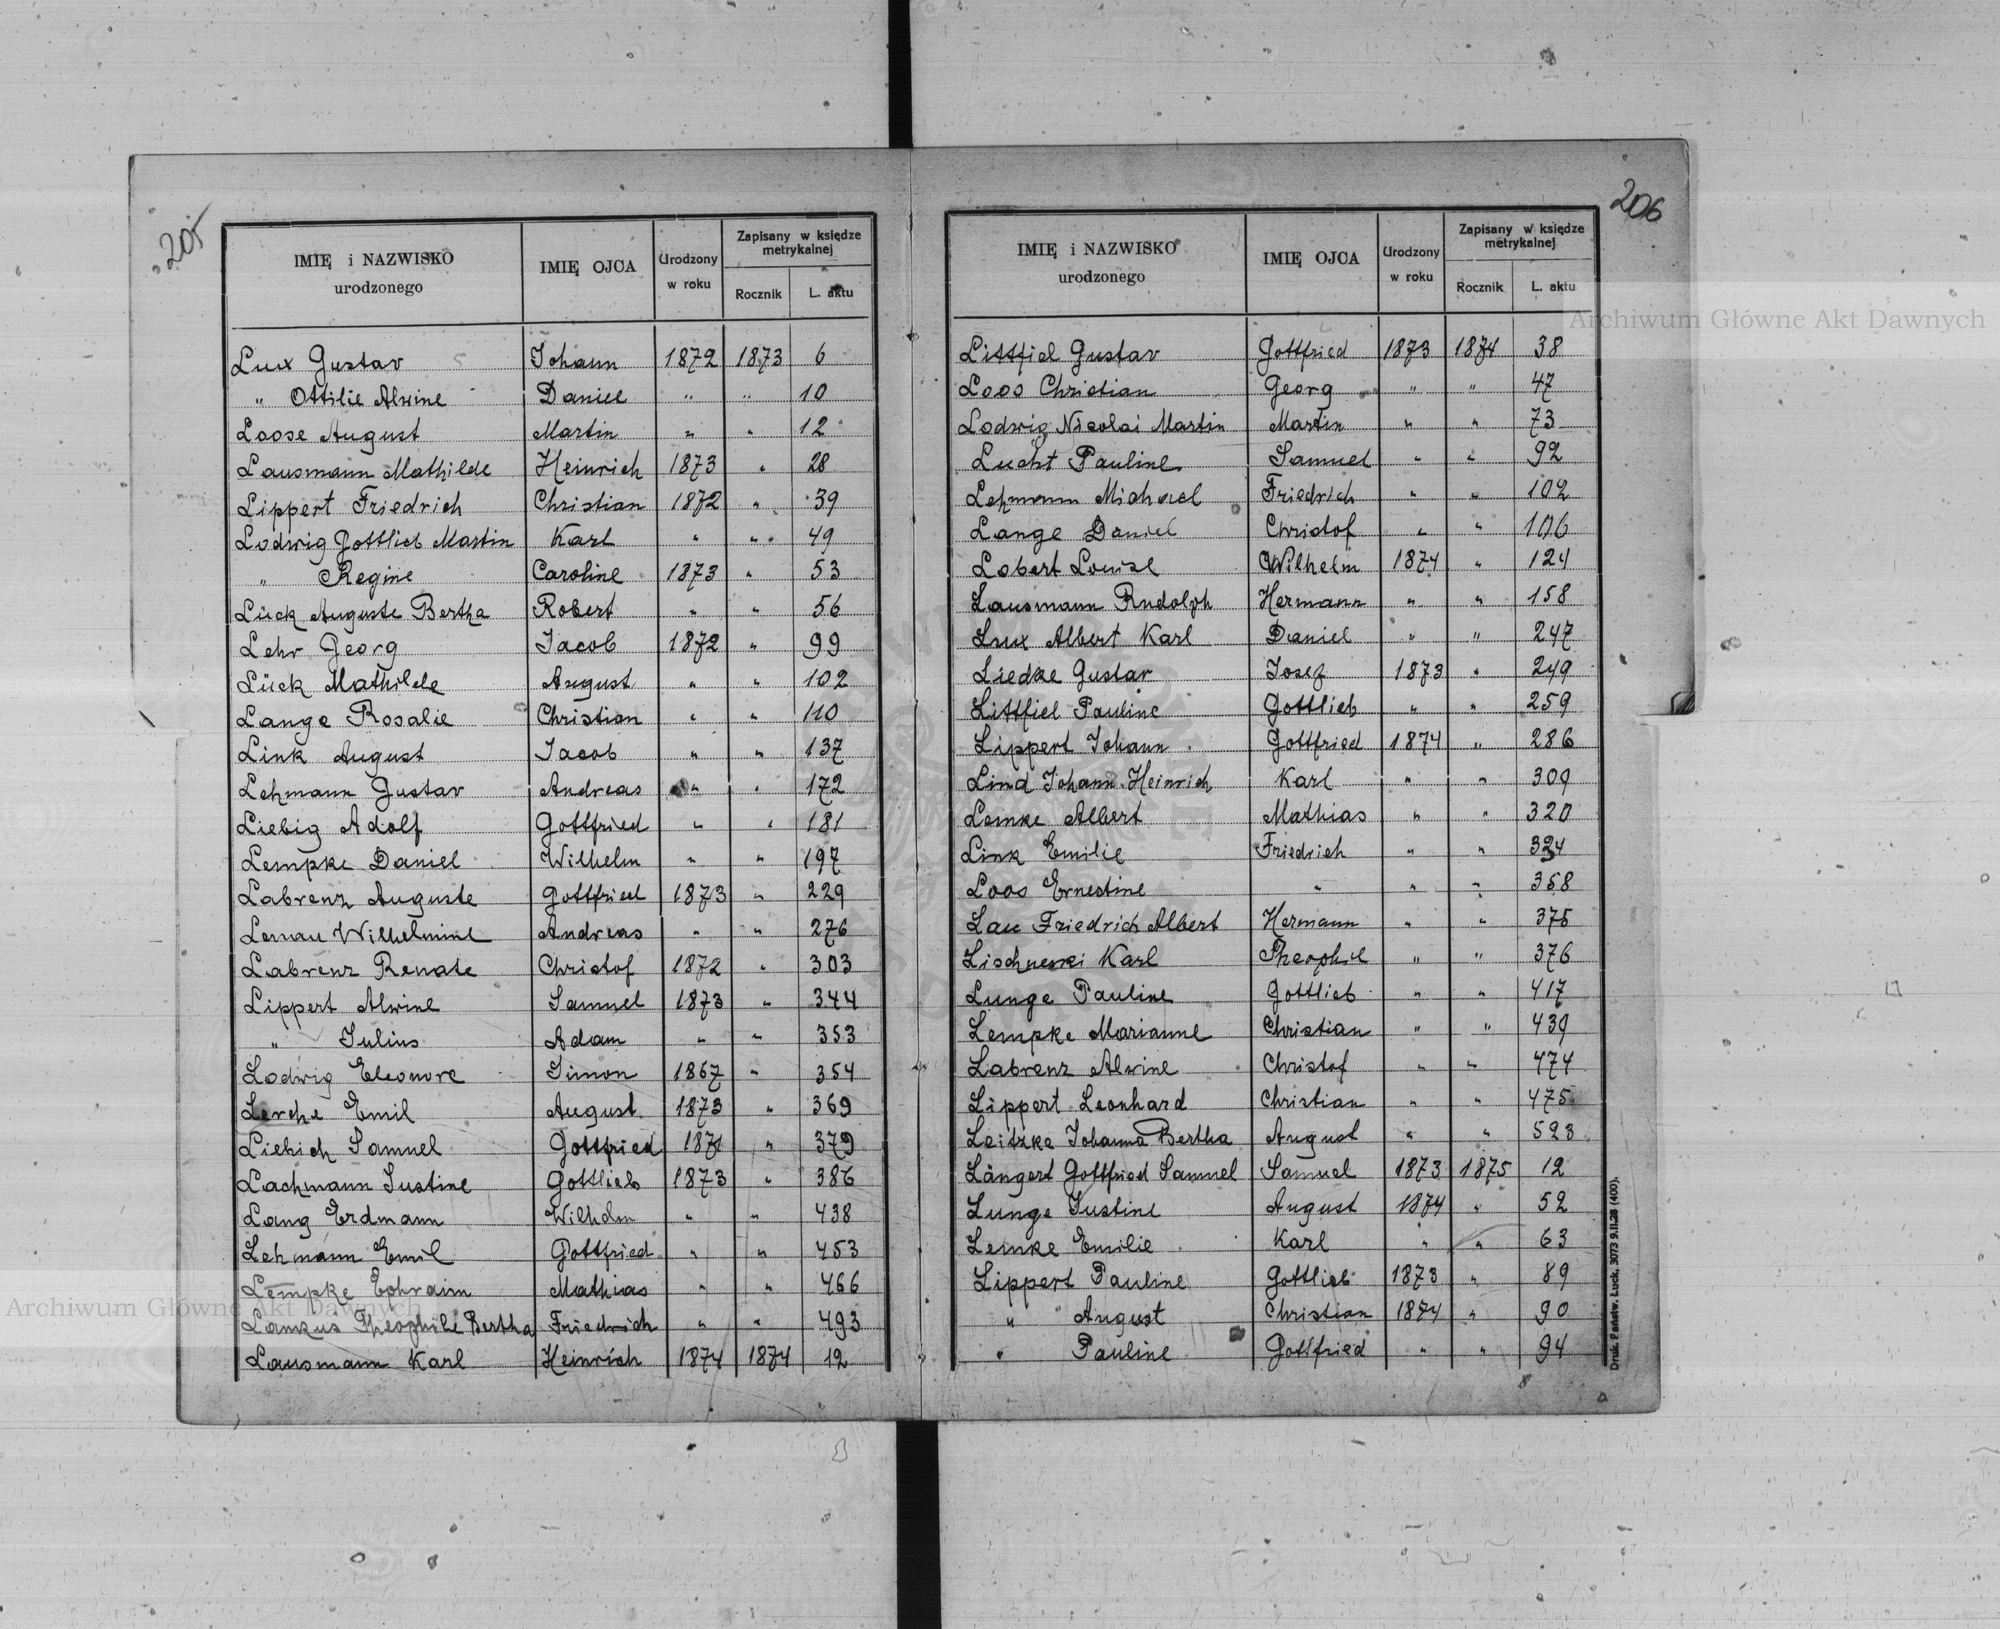 205
IMIĘ i NAZWISKO urodzonego IMIĘ OJCA Urodzony w roku Zapisany w księdze metrykalnej Rocznik L. aktu
Lux Gustav Johann 1872 1873 6
" Ottilie Alwine Daniel " " 10
Loose August Martin " " 12
Lausmann Mathilde Heinrich 1873 " 28
Lippert Friedrich Christian 1872 " 39
Lodwig Gottlieb Martin Karl " " 49
" Regine Caroline 1873 " 53
Lück Auguste Bertha Robert " " 56
Lehr Georg Jacob 1872 " 99
Lück Mathilde August " " 102
Lange Rosalie Christian " " 110
Link August Jacob " " 137
Lehmann Gustav Andreas " " 172
Liebig Adolf Gottfried " " 181
Lempke Daniel Wilhelm " " 197
Labrenz Auguste Gottfried 1873 " 229
Lenau Wilhelmine Andreas " " 276
Labrenz Renate Christof 1872 " 303
Lippert Alwine Samuel 1873 " 344
" Julius Adam " " 353
Lodwig Eleonore Simon 1867 " 354
Lerche Emil August 1873 " 369
Liebich Samuel Gottfried 1871 " 379
Lachmann Justine Gottlieb 1873 " 386
Lang Erdmann Wilhelm " " 438
Lehmann Emil Gottfried " " 453
Lempke Ephraim Mathias " " 466
Lankus Theophile Bertha Friedrich " " 493
Lausmann Karl Heinrich 1874 1874 12
206
IMIĘ i NAZWISKO urodzonego IMIĘ OJCA Urodzony w roku Zapisany w księdze metrykalnej Rocznik L. aktu
Littfiel Gustav Gottfried 1873 1874 38
Loos Christian Georg " " 47
Lodwig Nicolai Martin Martin " " 73
Lucht Pauline Samuel " " 92
Lehmann Michael Friedrich " " 102
Lange Daniel Christof " " 106
Lobert Louise Wilhelm 1874 " 124
Lausmann Rudolph Hermann " " 158
Lux Albert Karl Daniel " " 247
Liedke Gustav Josef 1873 " 249
Littfiel Pauline Gottlieb " " 259
Lippert Johann Gottfried 1874 " 286
Lind Johann Heinrich Karl " " 309
Lemke Albert Mathias " " 320
Link Emilie Friedrich " " 324
Loos Ernestine " " " 358
Lau Friedrich Albert Hermann " " 375
Lischneski Karl Theophil " " 376
Lunge Pauline Gottlieb " " 417
Lempke Marianne Christian " " 439
Labrenz Alwine Christof " " 474
Lippert Leonhard Christian " " 475
Leitzke Johanna Bertha August " " 523
Längert Gottfried Samuel Samuel 1873 1875 12
Lunge Justine August 1874 " 52
Lemke Emilie Karl " " 63
Lippert Pauline Gottlieb 1873 " 89
" August Christian 1874 " 90
" Pauline Gottfried " " 94
Druk. Państw. Łuck, 3073 9.II.28 (400).
Archiwum Główne Akt Dawnych
Archiwum Główne Akt Dawnych